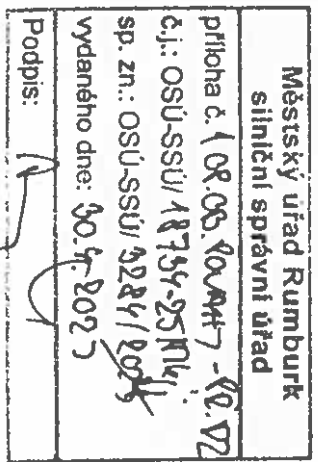 Městský úřad Rumburk
silniční správní úřad
příloha č. 1
č.j.: OSÚ-SSÚ/ 18754-25
sp. zn.: OSÚ-SSÚ/ 3284/ 2025
vydaného dne: 30.4.2025
Podpis: